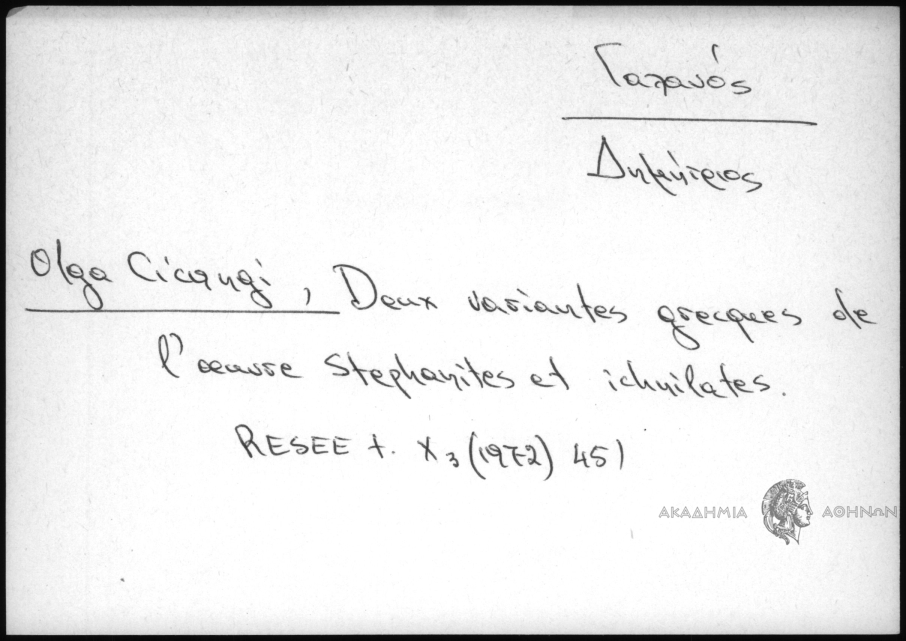 Γαλανός
Δημήτριος
Olga Cicangi, Deux variantes grecques de
l'œuvre Stephanites et ichnilates.
RESEE t. X₃ (1972) 451
ΑΚΑΔΗΜΙΑ ΑΘΗΝΩΝ